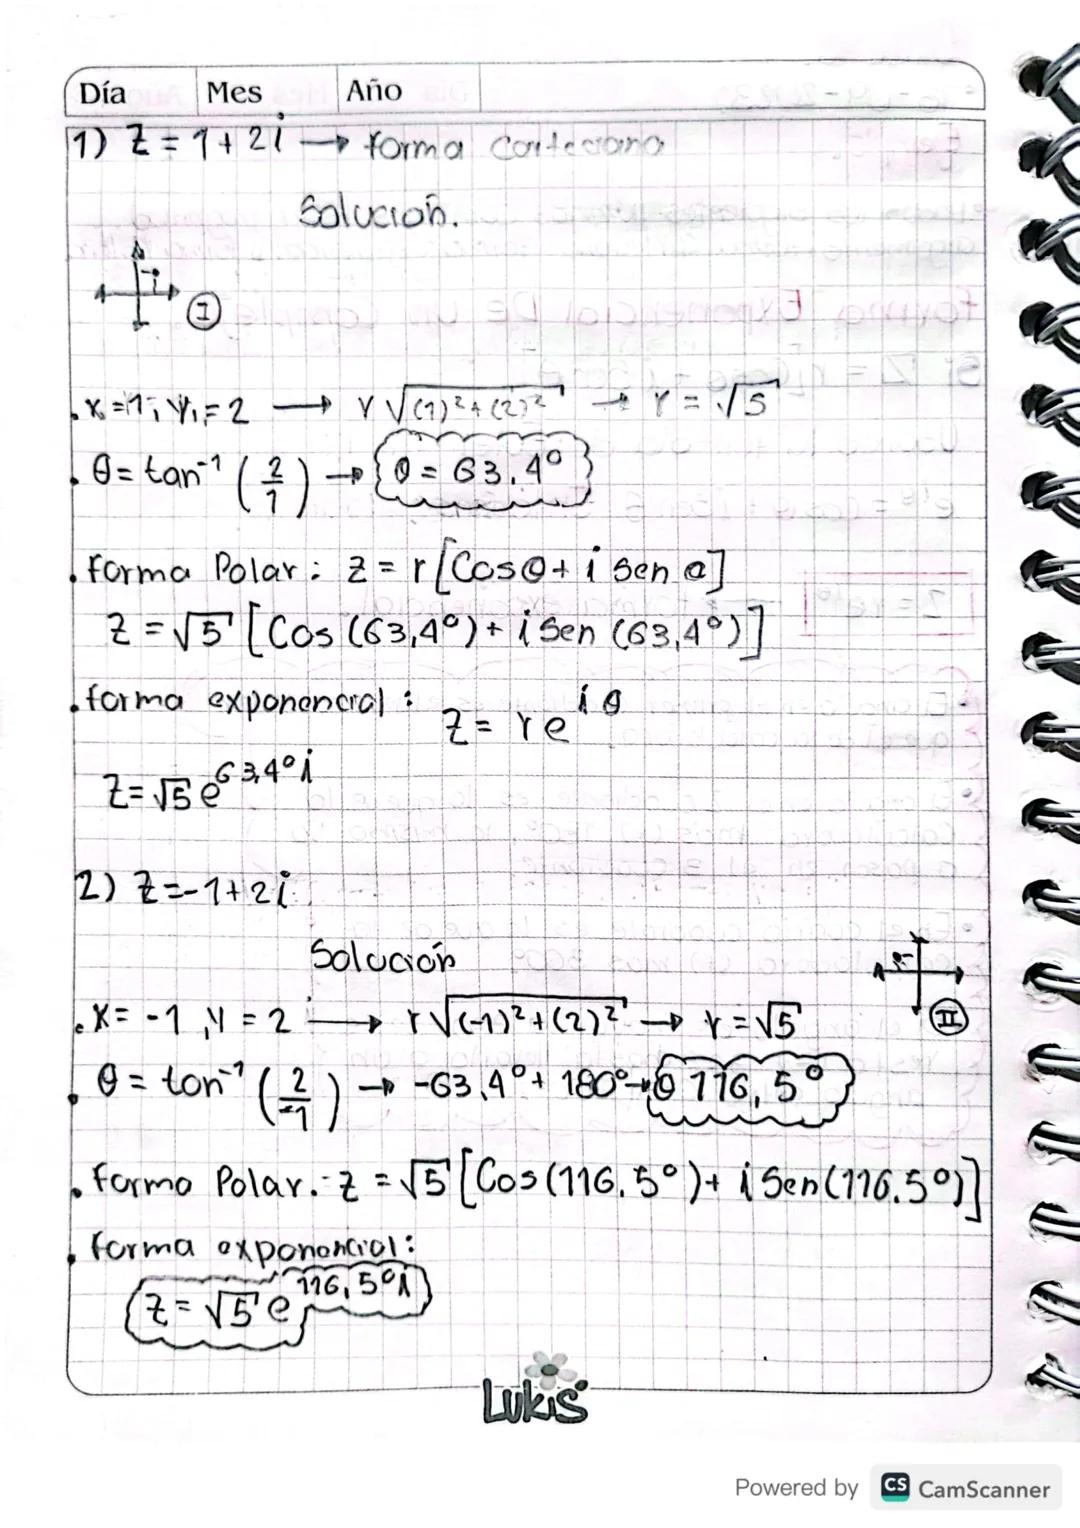 Día Mes Año
1) Z = 1 + 2i → forma Cartesiana
Solución.
I
. x = 1; y₁ = 2 → r √(1)² + (2)² → r = √5
. θ = tan⁻¹ (2/1) → θ = 63.4°
. forma Polar: z = r [Cos θ + i Sen θ]
z = √5 [Cos (63,4°) + i Sen (63,4°)]
. forma exponencial: z = r e^iθ
z = √5 e^63,4°i
2) z = -1 + 2i
Solución
II
. x = -1, y = 2 → r √(-1)² + (2)² → r = √5
. θ = tan⁻¹ (2/-1) → -63.4° + 180° → θ 116,5°
. forma Polar.- z = √5 [Cos (116.5°) + i Sen (116.5°)]
. forma exponencial:
z = √5 e^116,5°i
Lukis
Powered by CS CamScanner